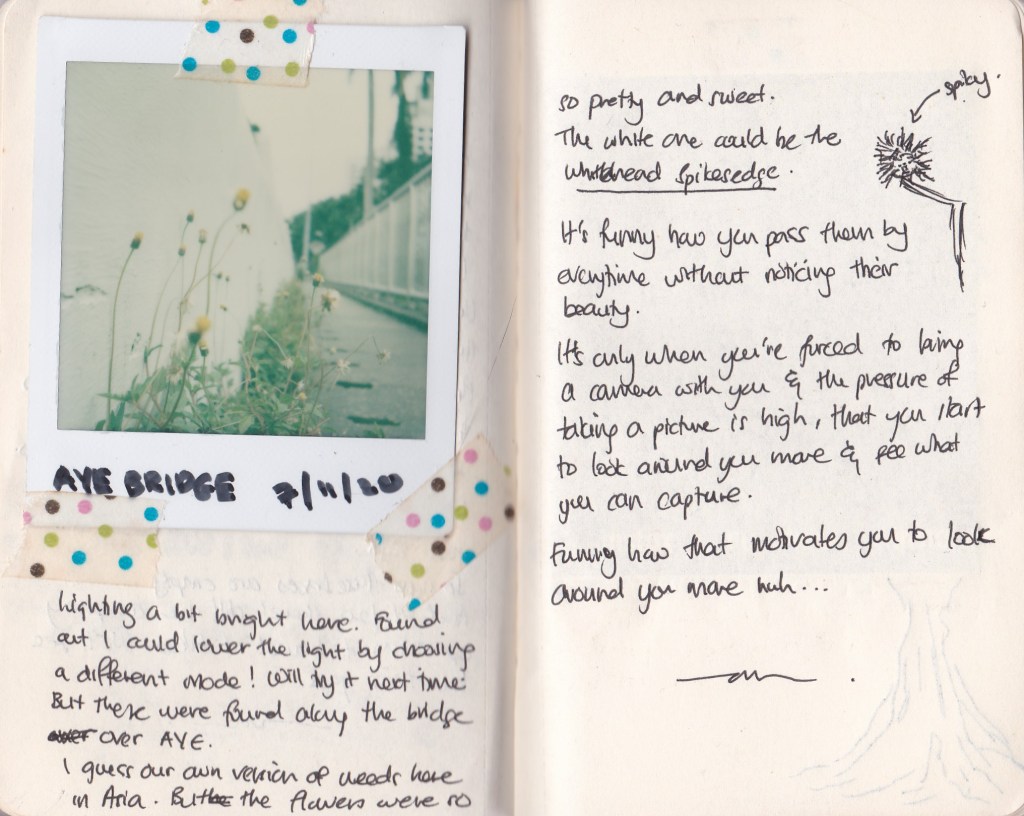 AYE BRIDGE 7/11/20
Lighting a bit bright here. Found
out I could lower the light by choosing
a different mode! Will try it next time.
But these were found along the bridge
over AYE.
I guess our own version of weeds here
in Asia. But the flowers were so
spiky.
so pretty and sweet.
The white one could be the
Whitehead Spikesedge.
It's funny how you pass them by
everytime without noticing their
beauty.
It's only when you're forced to bring
a camera with you & the pressure of
taking a picture is high, that you start
to look around you more & see what
you can capture.
Funny how that motivates you to look
around you more huh...